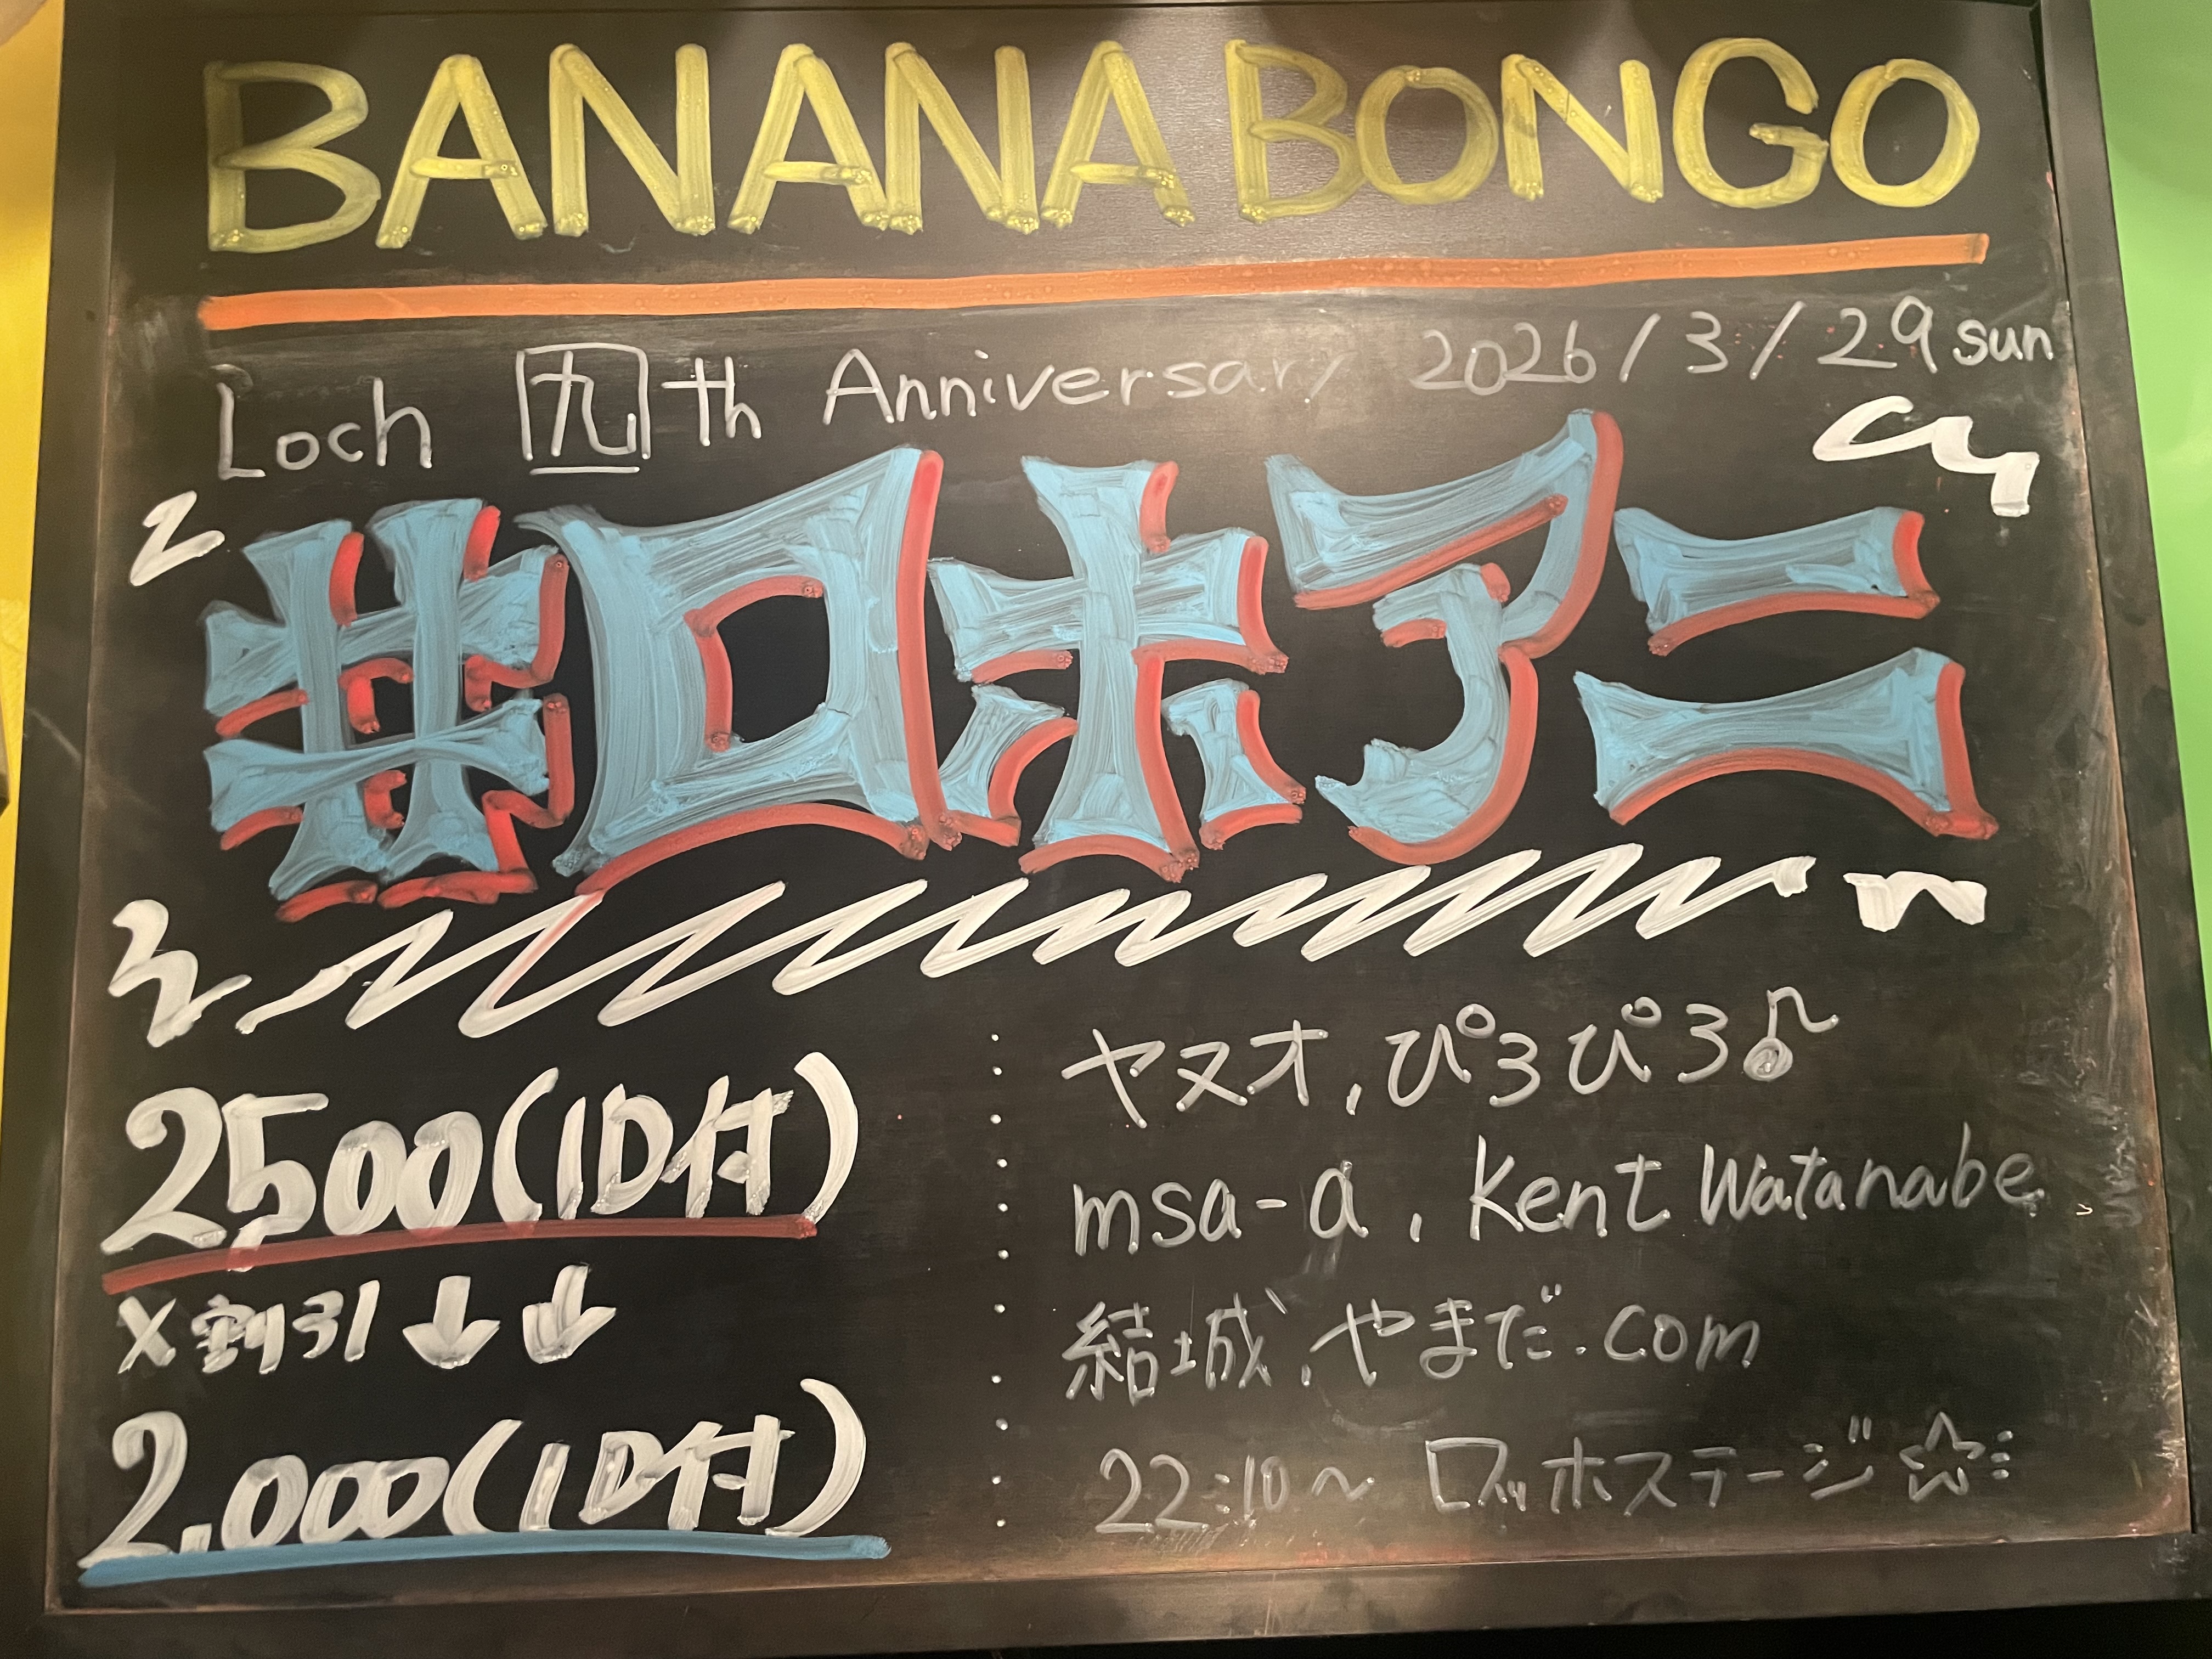 BANANA BONGO
Loch 九th Anniversary 2026/3/29 sun
#ロホアニ
2500(1D付)
X割引↓↓
2,000(1D付)
ヤヌオ, ぴろぴろ♪
msa-a, Kent Watanabe
結城, やまだ.com
22:10〜 ロッホステージ☆